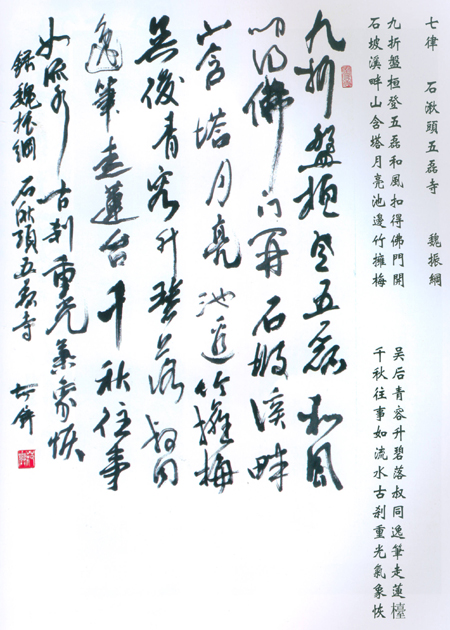 七律 石湫頭五磊寺 魏振綱
九折盤桓登五磊和風扣得佛門開
石坡溪畔山含塔月亮池邊竹擁梅
吴后青容升碧落叔同逸筆走蓮檯
千秋往事如流水古刹重光氣象恢
九折盤桓登五磊和風
叩得佛門開石坡溪畔
山含塔月亮池邊竹擁梅
吴後青容升碧落叔同
逸筆走蓮台千秋往事
如流水古刹重光氣象恢
録魏振綱石湫頭五磊寺